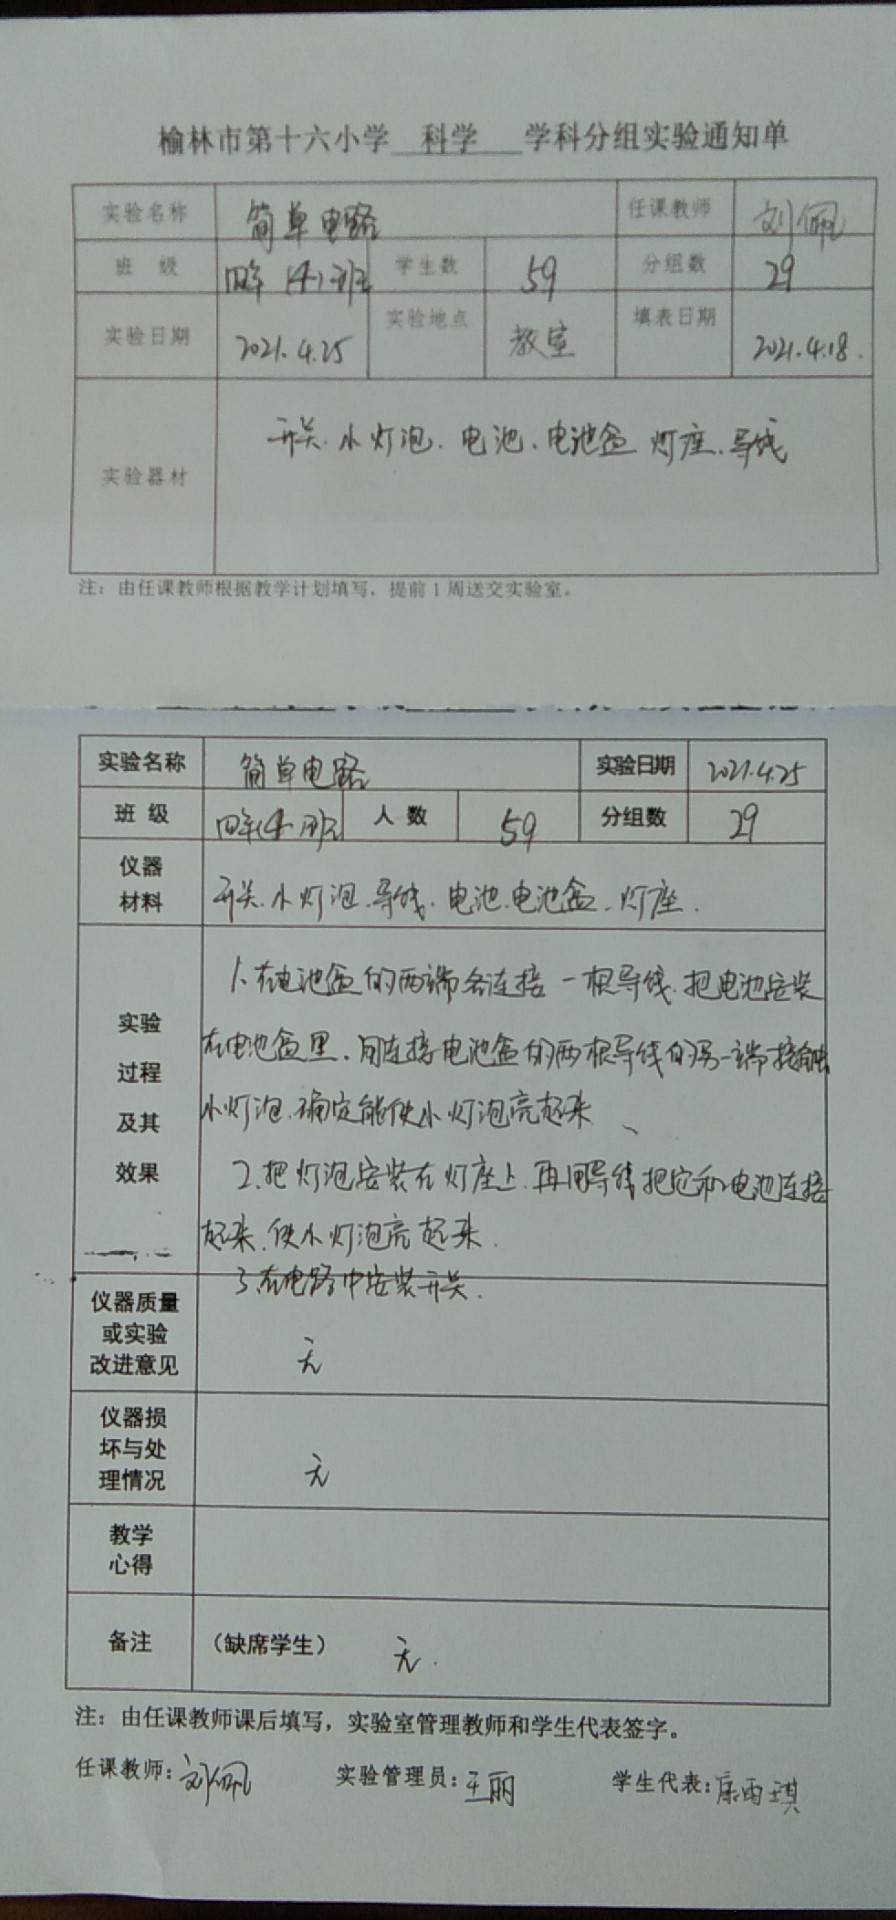 榆林市第十六小学 科学 学科分组实验通知单
实验名称 简单电路 任课教师 刘佩
班 级 四年(4)班 学生数 59 分组数 29
实验日期 2021.4.25 实验地点 教室 填表日期 2021.4.18.
实验器材 开关.小灯泡.电池.电池盒 灯座.导线
注：由任课教师根据教学计划填写，提前1周送交实验室。
实验名称 简单电路 实验日期 2021.4.25
班 级 四年(4)班 人 数 59 分组数 29
仪器
材料
开关.小灯泡.导线.电池.电池盒.灯座.
实验
过程
及其
效果
1.在电池盒的两端各连接一根导线.把电池安装
在电池盒里.用连接电池盒的两根导线的另一端接触
小灯泡.确定能使小灯泡亮起来、
2.把灯泡安装在灯座上.再用导线把它和电池连接
起来.使小灯泡亮起来.
3.在电路中安装开关.
仪器质量
或实验
改进意见
无
仪器损
坏与处
理情况
无
教学
心得
备注 （缺席学生） 无.
注：由任课教师课后填写，实验室管理教师和学生代表签字。
任课教师：刘佩 实验管理员：王丽 学生代表：康雨琪